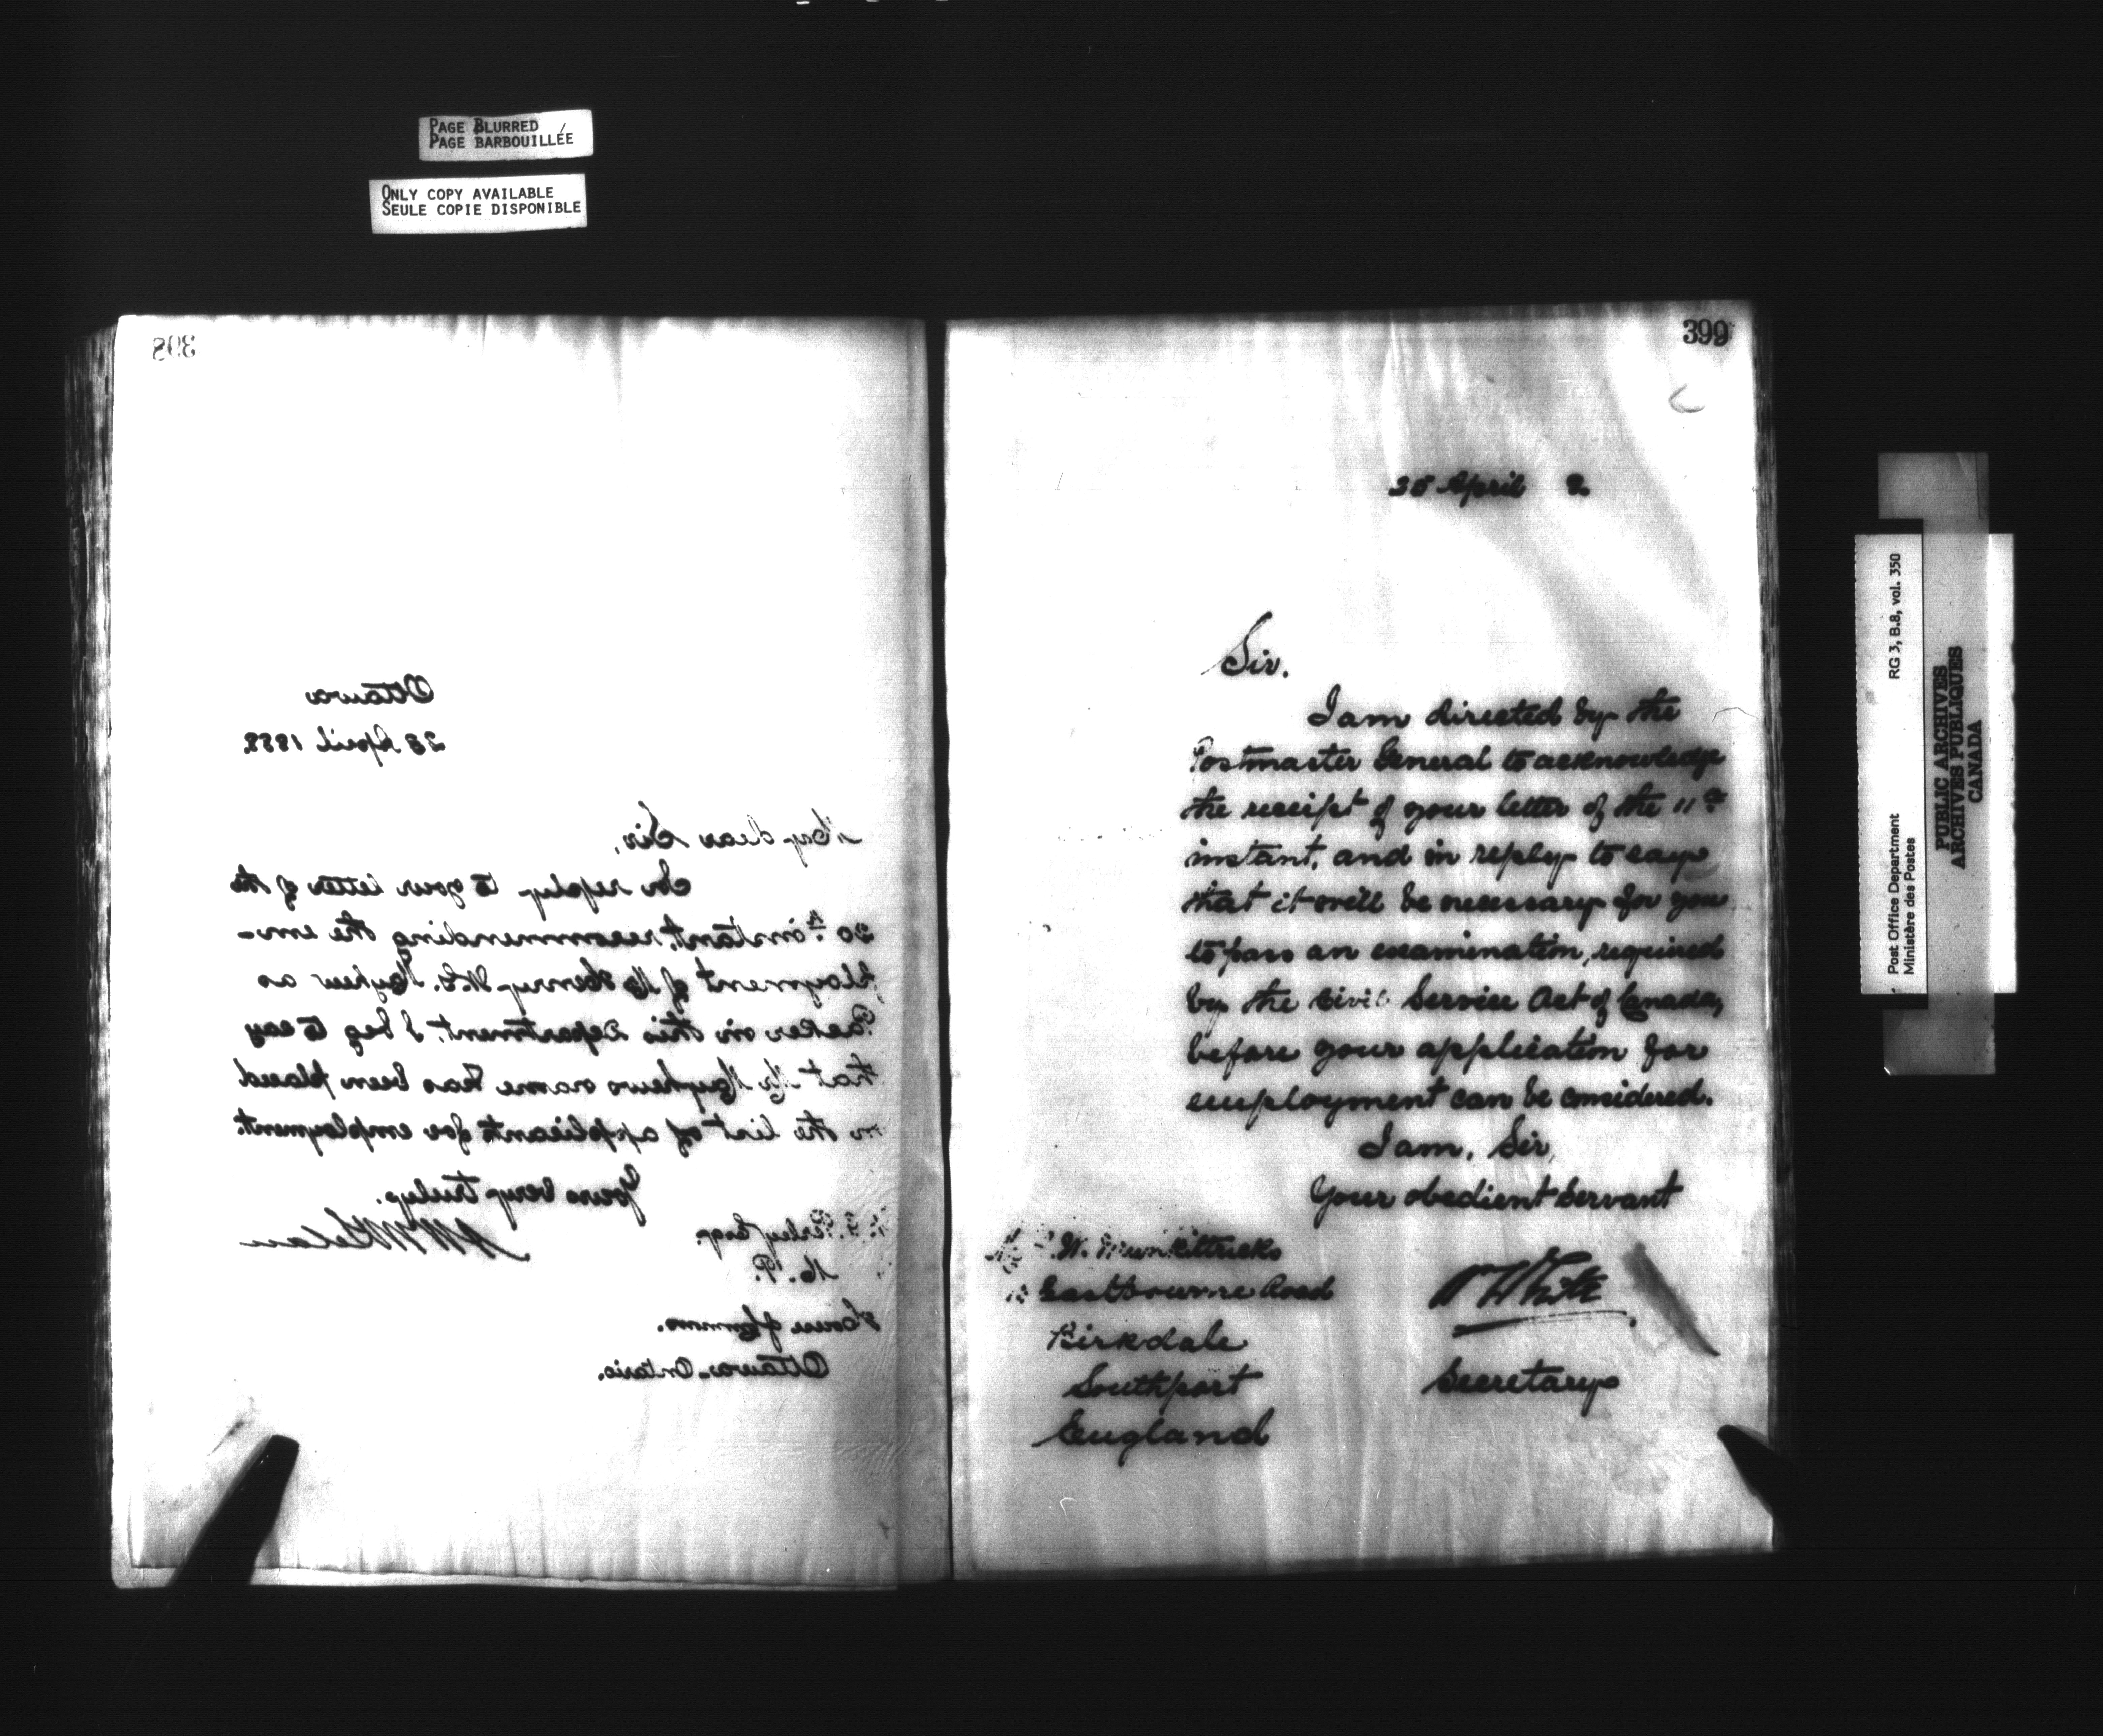 PAGE BLURRED
PAGE BARBOUILLÉE
ONLY COPY AVAILABLE
SEULE COPIE DISPONIBLE
398
Ottawa
28 April 1888.
My dear Sir,
In reply to your letter of the
20th instant, recommending the em-
ployment of Mr Henry W. Mayhew as
Packer in this Department, I beg to say
that Mr Mayhews name has been placed
on the list of applicants for employment.
Yours very truly.
Perley Esqr.
M. P.
House of Commons.
Ottawa Ontario.
399
April
Sir.
I am directed by the
Postmaster General to acknowledge
the receipt of your letter of the 11th
instant, and in reply to say
that it will be necessary for you
to pass an examination, required
by the Civil Service Act of Canada,
before your application for
employment can be considered.
I am, Sir,
Your obedient Servant
W. Munkittrick
Eastbourne Road
Birkdale
Southport
England
White
Secretary
Post Office Department RG 3, B.8, vol. 350
Ministère des Postes
PUBLIC ARCHIVES
ARCHIVES PUBLIQUES
CANADA